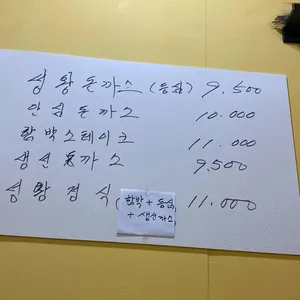 성왕돈까스 (등심) 9,500
안심돈까스 10.000
함박스테이크 11.000
생선돈까스 9,500
성왕정식 (함박 + 등심, + 생선까스 11.000